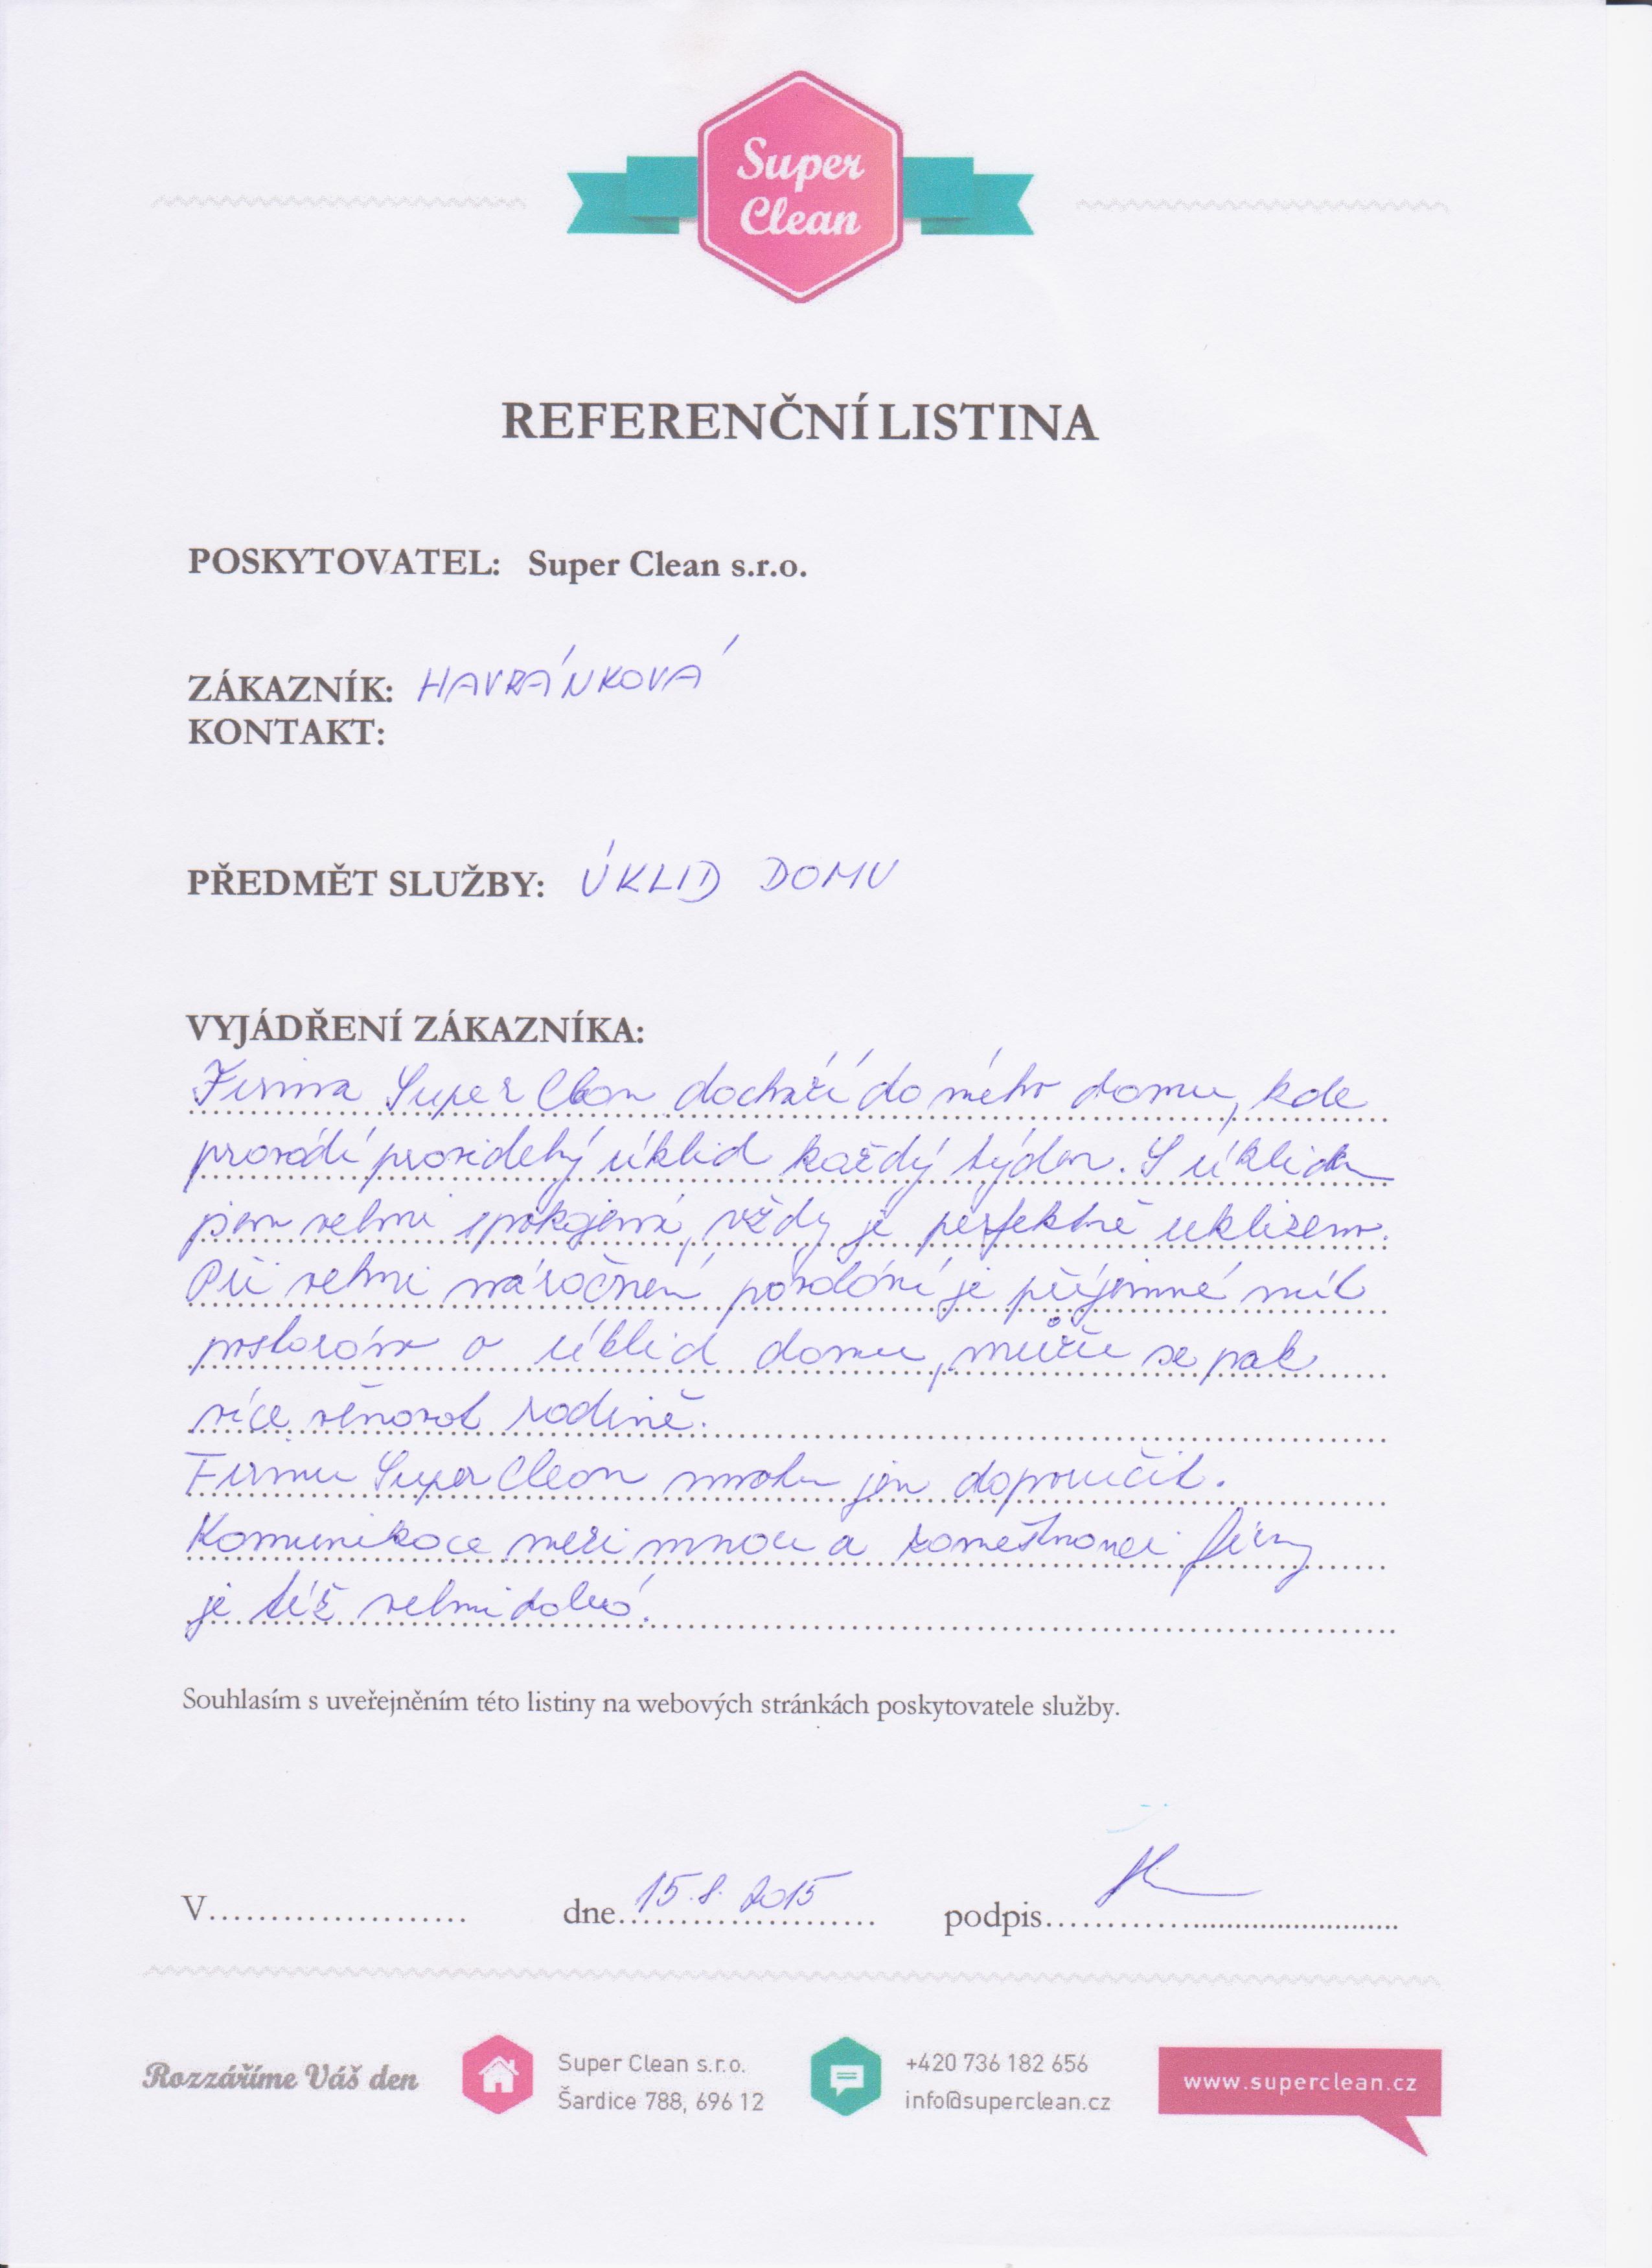 Super
Clean
REFERENČNÍ LISTINA
POSKYTOVATEL: Super Clean s.r.o.
ZÁKAZNÍK: HAVRÁNKOVÁ
KONTAKT:
PŘEDMĚT SLUŽBY: ÚKLID DOMU
VYJÁDŘENÍ ZÁKAZNÍKA:
Firma Super Clean dochází do mého domu, kde
provádí pravidelný úklid každý týden. S úklidem
jsem velmi spokojená, vždy je perfektně uklizeno.
Při velmi náročném povolání je příjemné mít
postaráno o úklid domu, můžu se pak
více věnovat rodině.
Firmu Super Clean mohu jen doporučit.
Komunikace mezi mnou a zaměstnanci firmy
je též velmi dobrá.
Souhlasím s uveřejněním této listiny na webových stránkách poskytovatele služby.
V..................... dne 15.8. 2015 podpis.............................
Rozzáříme Váš den
Super Clean s.r.o.
Šardice 788, 696 12
+420 736 182 656
info@superclean.cz
www.superclean.cz